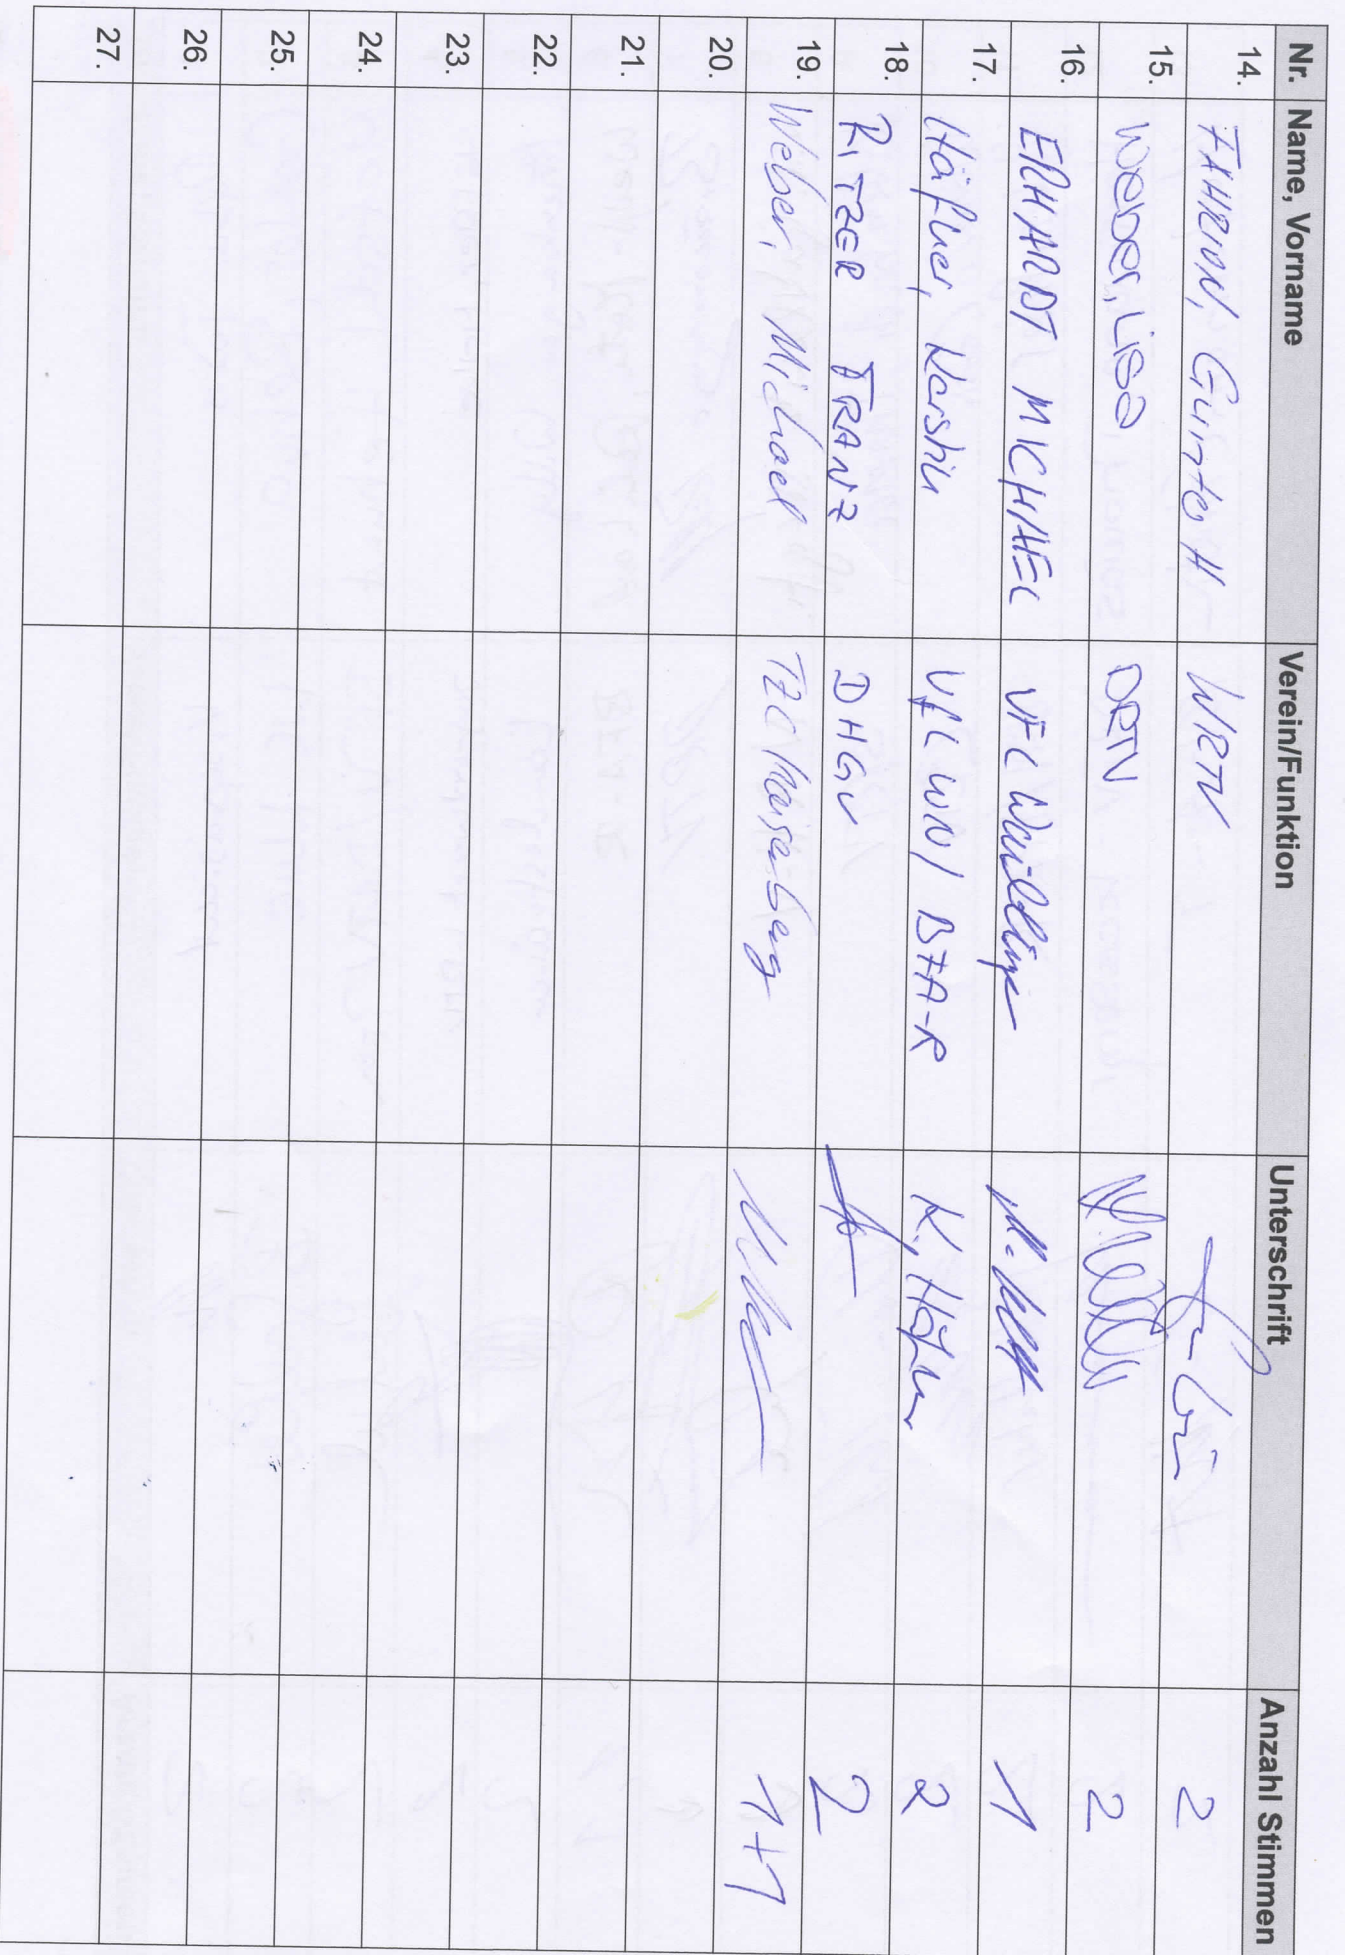 Nr. Name, Vorname Verein/Funktion Unterschrift Anzahl Stimmen
14. FAHRION, Günter H WRTV 2
15. Weber, Lisa DRTV 2
16. ERHARDT MICHAEL VFL Waiblingen 1
17. Häfner, Kerstin VfL WN / BFA-R K. Häfner 2
18. RITZER FRANZ DHGV 2
19. Weber, Michael 1+1
20.
21.
22.
23.
24.
25.
26.
27.